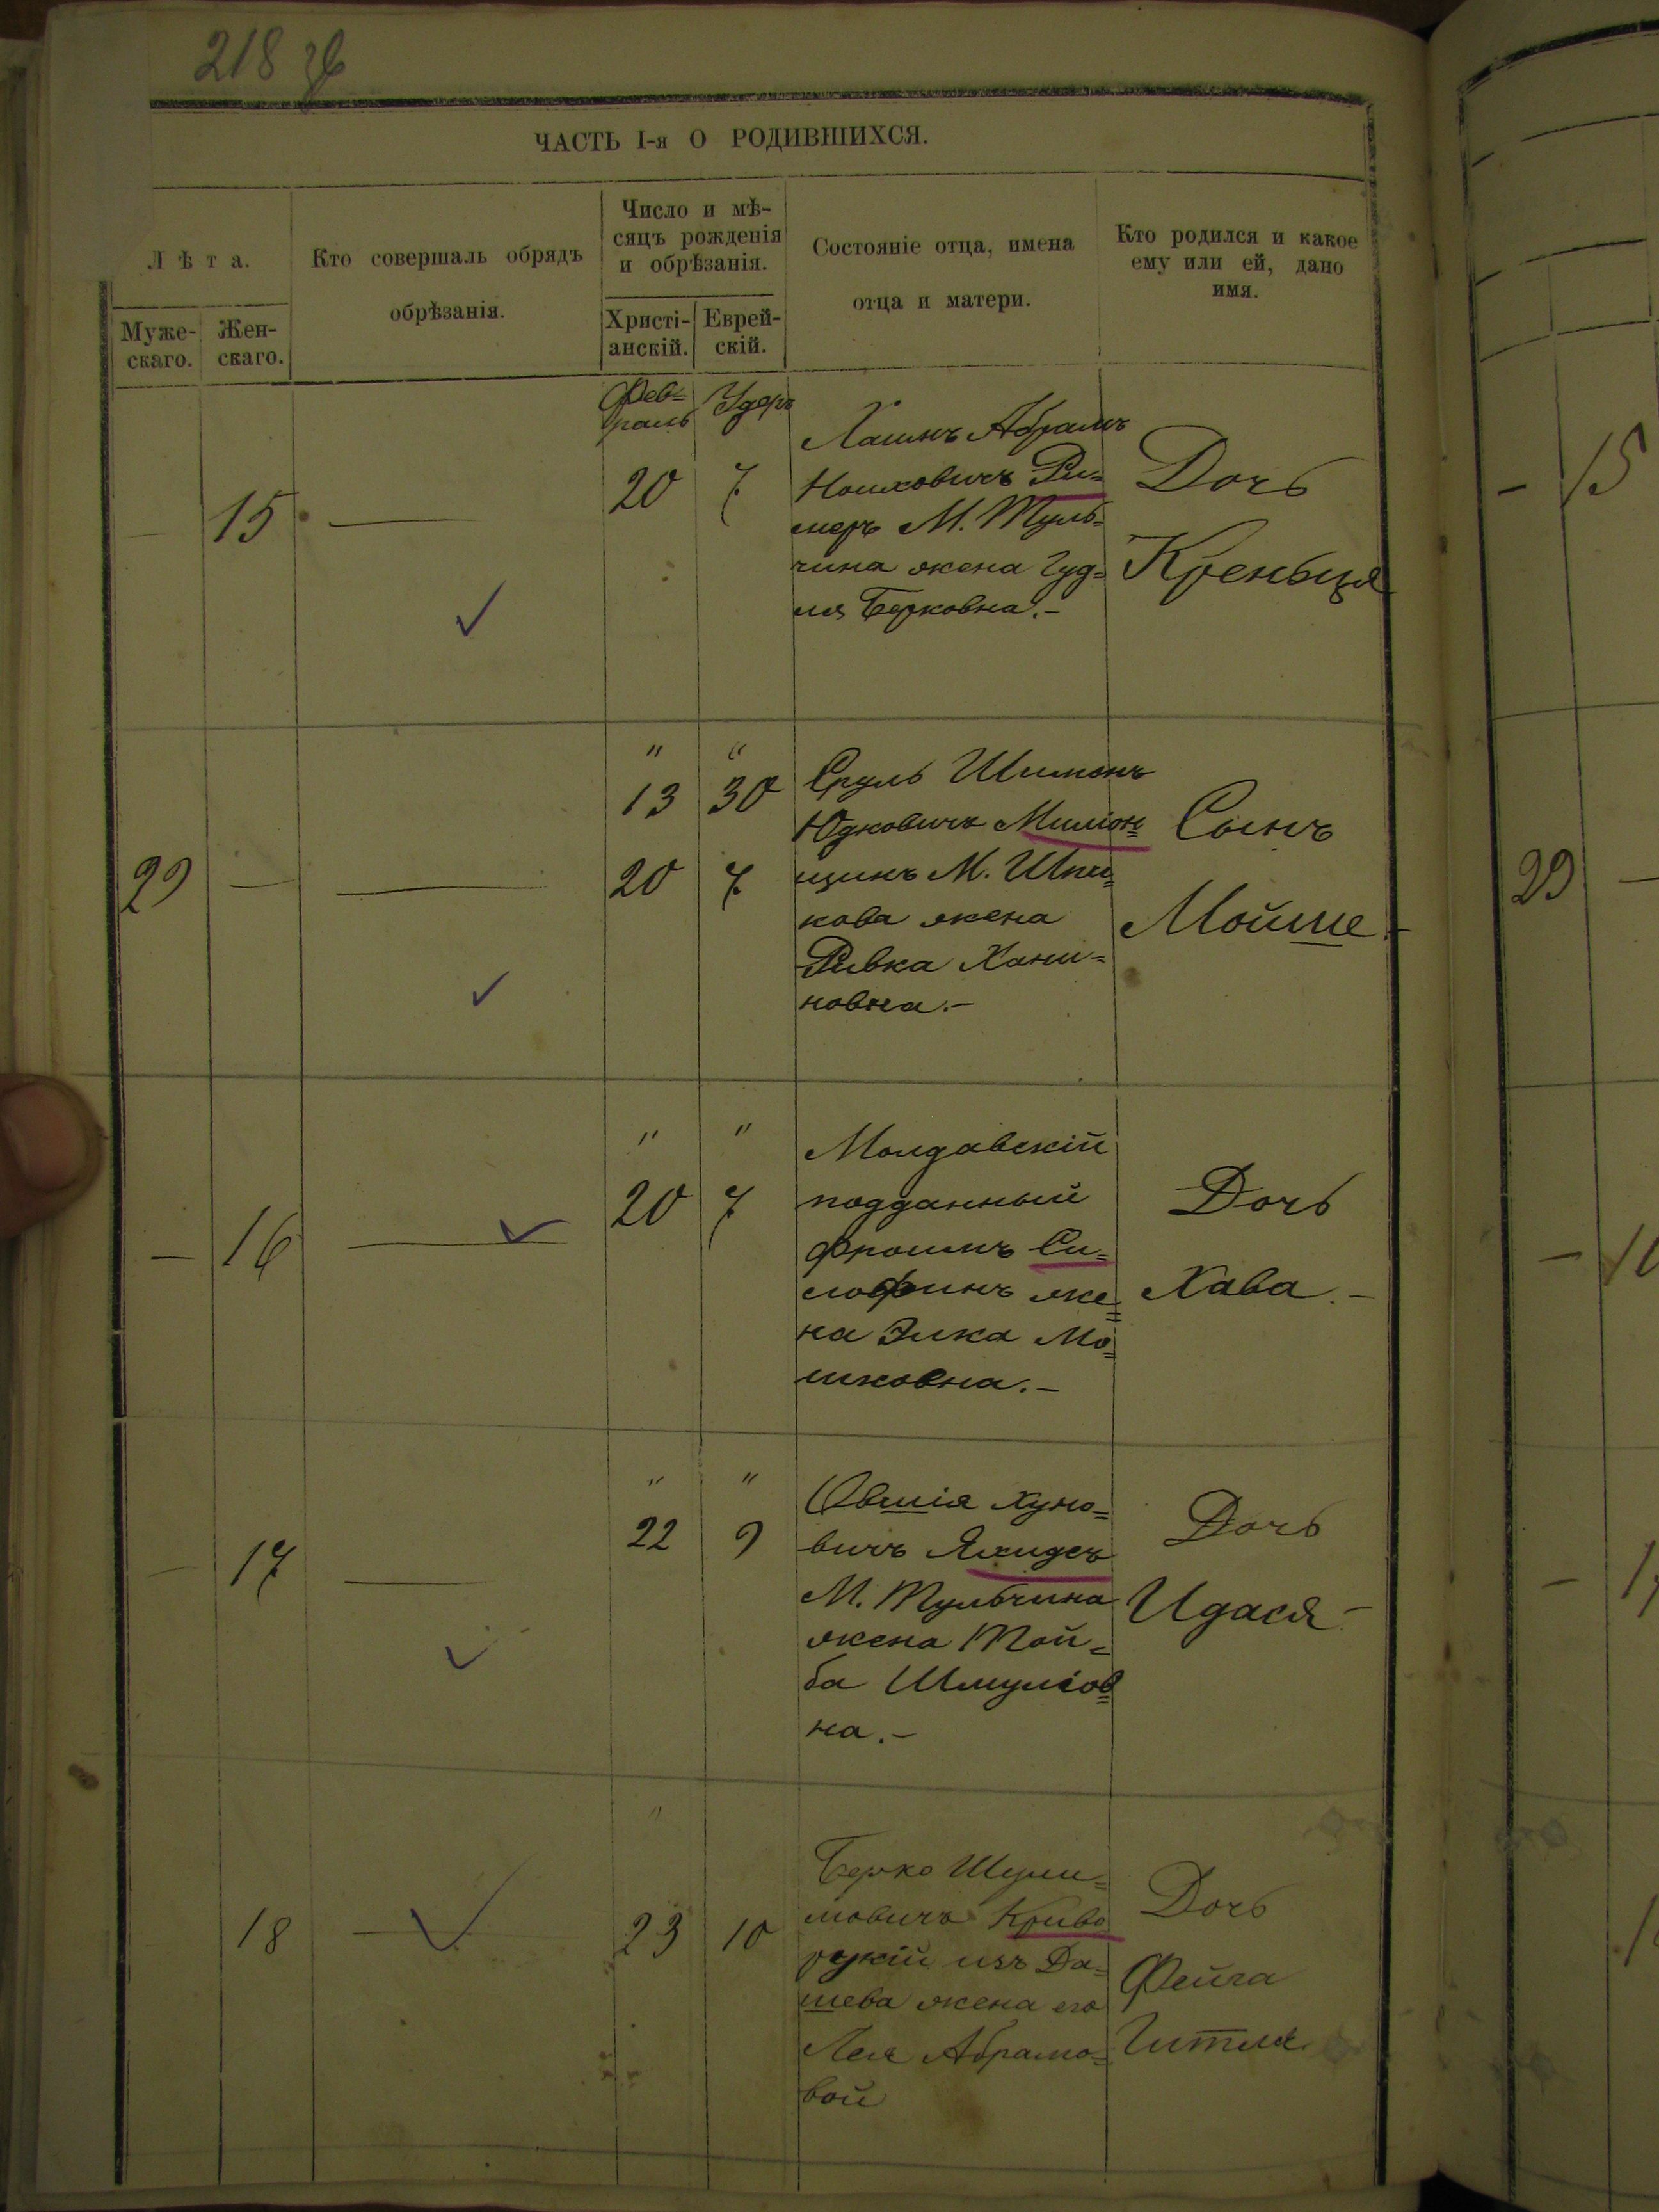 218 зв
ЧАСТЬ I-я О РОДИВШИХСЯ.
Лѣта.
Муже-
скаго.
Жен-
скаго.
Кто совершалъ обрядъ
обрѣзанія.
Число и мѣ-
сяцъ рожденія
и обрѣзанія.
Христі-
анскій.
Еврей-
скій.
Состояніе отца, имена
отца и матери.
Кто родился и какое
ему или ей, дано
имя.
Фев=
раль
Удеръ
15
20
7
Хаимъ Абрамъ
Ношковичъ Ри=
меръ М. Туль=
чина жена Гуд=
ля Берковна.-
Дочь
Креньця
29
" "
13 30
20 7
Сруль Шимонъ
Юдковичъ Миліон=
щикъ М. Шпи=
кова жена
Ривка Хаки=
новна.-
Сынъ
Мойше.-
16
" "
20 7
Молдавскій
подданный
Фроимъ Си=
лофинъ же=
на Элка Мо=
шковна.-
Дочь
Хава.-
17
" "
22 9
Овшія Хуно=
вичъ Яхидсъ
М. Тульчина
жена Той=
ба Шмулiов=
на.-
Дочь
Идася-
18
"
23 10
Берко Шули=
мовичъ Криво
рукій изъ Да=
шева жена его
Лея Абрамо=
вой
Дочь
Фейга
Гитля
- 15
29 -
-
-